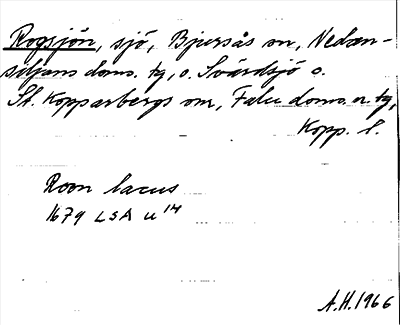 Rogsjön, sjö, Bjursås sn, Nedan-
siljans doms. tg, o. Svärdsjö o.
St. Kopparbergs sn, Falu doms. n. tg,
Kopp. l.
Roon lacus
1679 LSA u 14
A.H. 1966